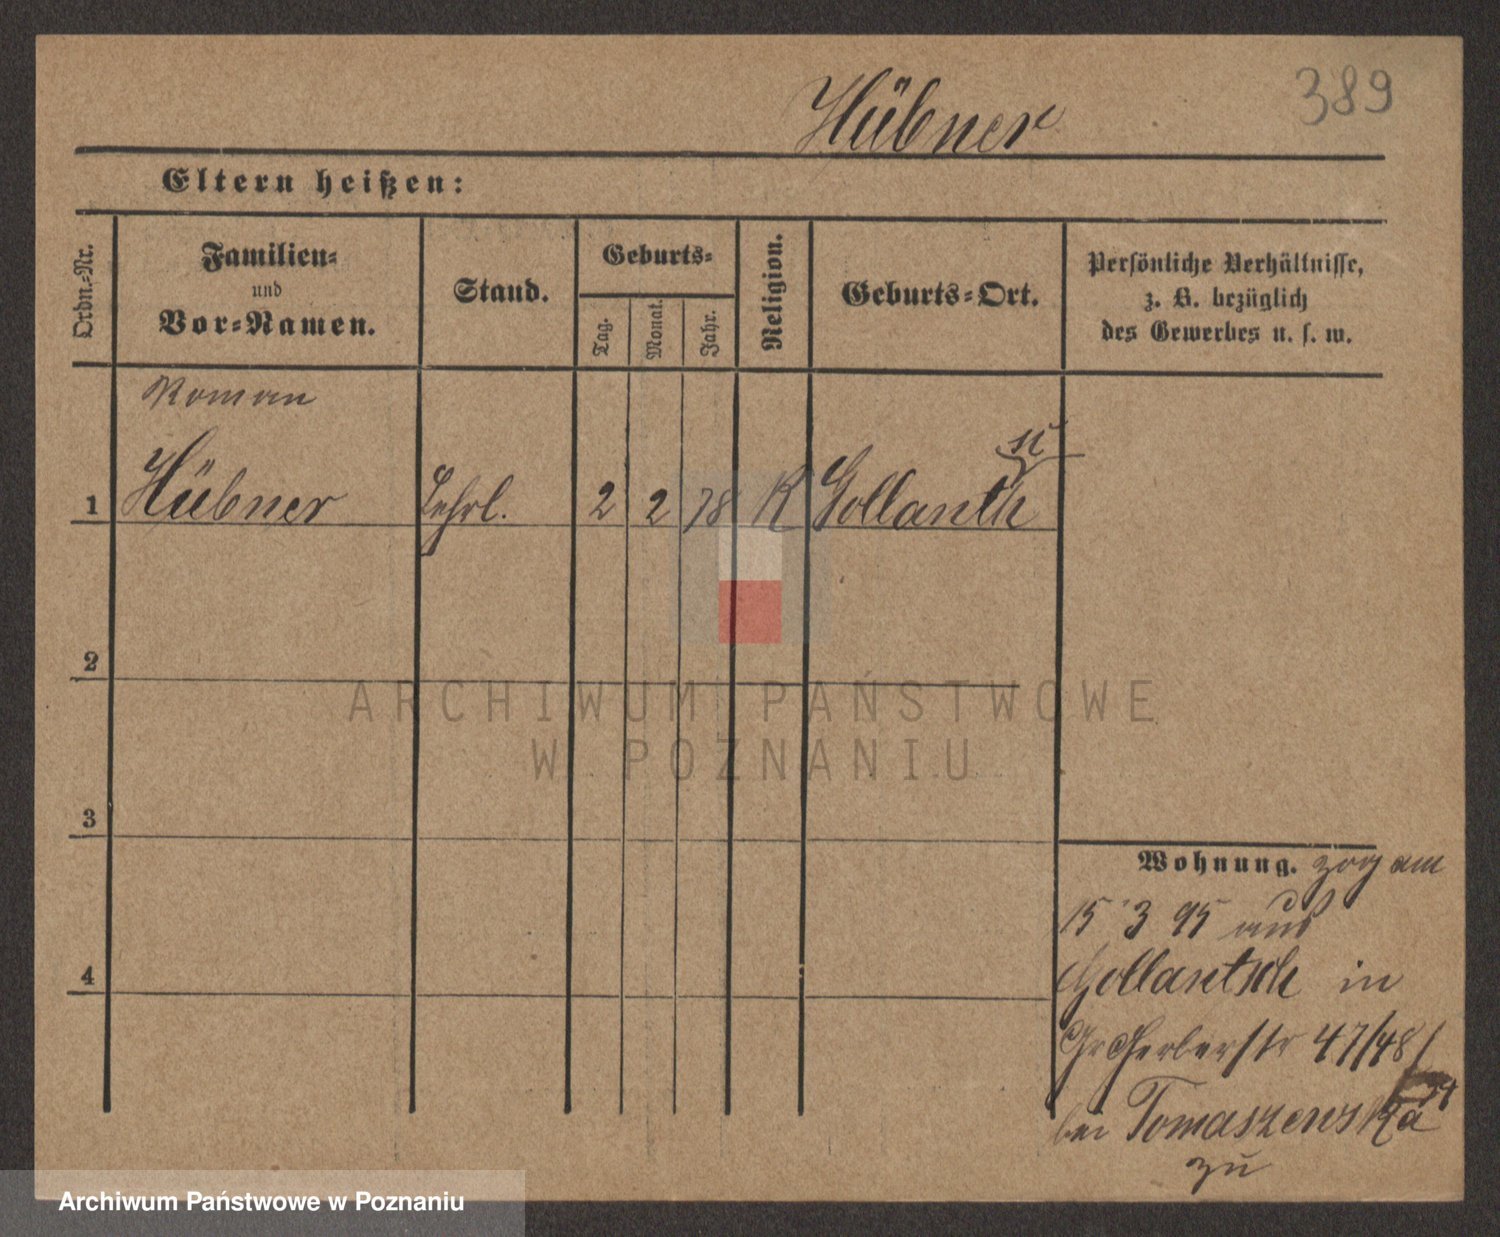 Hübner
389
Eltern heißen:
Ordn.-Nr.
Familien-
und
Vor-Namen.
Stand.
Geburts-
Tag.
Monat.
Jahr.
Religion.
Geburts-Ort.
Persönliche Verhältnisse,
z. B. bezüglich
des Gewerbes u. s. w.
Roman
1 Hübner Lehrl. 2 2 78 K Gollantsch
2
3
4
Wohnung. zog am
15 3 95 aus
Gollantsch in
Gr Gerberstr 47/48
bei Tomaszewska
zu
ARCHIWUM PAŃSTWOWE
W POZNANIU
Archiwum Państwowe w Poznaniu